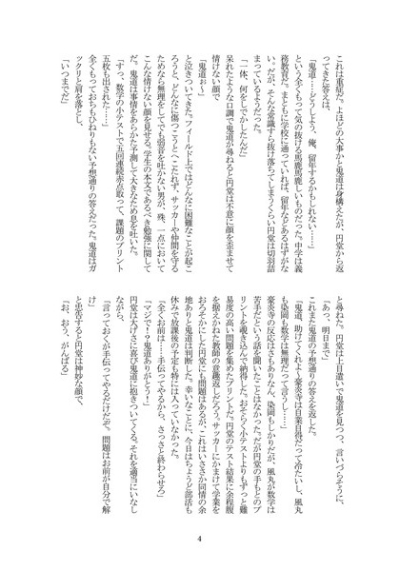 これは重症だ。よほどの大事かと鬼道は身構えたが、円堂から返
ってきた答えは、
「鬼道……どうしよう、俺、留年するかもしれない……」
という全くもって気の抜ける馬鹿馬鹿しいものだった。中学は義
務教育だ。まともに学校に通っていれば、留年などあるはずがな
い。だが、そんな常識すら抜け落ちてしまうくらい円堂は切羽詰
まっているようだった。
「一体、何をしでかしたんだ」
呆れたような口調で鬼道が尋ねると円堂は不意に顔を歪ませて
情けない顔で
「鬼道ぉ～」
と泣きついてきた。フィールド上ではどんなに困難なことが起こ
ろうと、どんなに傷つこうとへこたれず、サッカーや仲間を守る
ためなら無理をしてでも弱音を吐かない男が、殊、一点において
こんな情けない顔を見せる。学生の本文であるべき勉強に関して
だ。鬼道は事情をあらかた予測して大きなため息を吐いた。
「すっ、数学の小テストで五回連続赤点取って、課題のプリント
五枚も出された……」
全くもっておちもひねりもない予想通りの答えだった。鬼道はガ
ックリと肩を落とし、
「いつまでだ」
と尋ねた。円堂は上目遣いで鬼道を見つつ、言いづらそうに、
「あっ、明日まで」
これまた鬼道の予想通りの答えを返した。
「鬼道、助けてくれよ～豪炎寺は自業自得だって冷たいし、風丸
も染岡も数学は無理だって言うし……」
豪炎寺の反応はさもありなん、染岡もしかりだが、風丸が数学は
苦手だという話を聞いたことはなかった。だが円堂の手もとのプ
リントを覗き込んで納得した。おそらく小テストよりもずっと難
易度の高い問題を集めたプリントだ。円堂のテスト結果に余程腹
を据えかねた教師の意趣返しだろう。サッカーにかまけて学業を
おろそかにした円堂にも問題はあるが、これはいささか同情の余
地ありと鬼道は判断した。幸いなことに、今日はちょうど部活も
休みで放課後の予定も特には入っていなかった。
「全くお前は……手伝ってやるから、さっさと終わらせろ」
「マジで！？鬼道ありがとう！」
円堂は大げさに喜び鬼道に抱きついてくる。それを適当にいなし
ながら、
『言っておくが手伝ってやるだけだぞ。問題はお前が自分で解
け』
と忠告すると円堂は神妙な顔で、
『お、おう、がんばる』
4